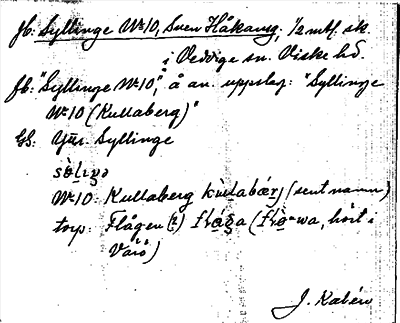 jb: Syllinge No 10, Sven Håkansg, 1/2 mtl. sk.
i Veddige sn. Viske hd.
jb: "Syllinge No 10", å an. uppslag: "Syllinge
No 10 (Kullaberg)"
GS: Yttr. Syllinge
No 10: Kullaberg (sent namn)
torp: Flågen (?) (hört i
Värö)
J. Kalén